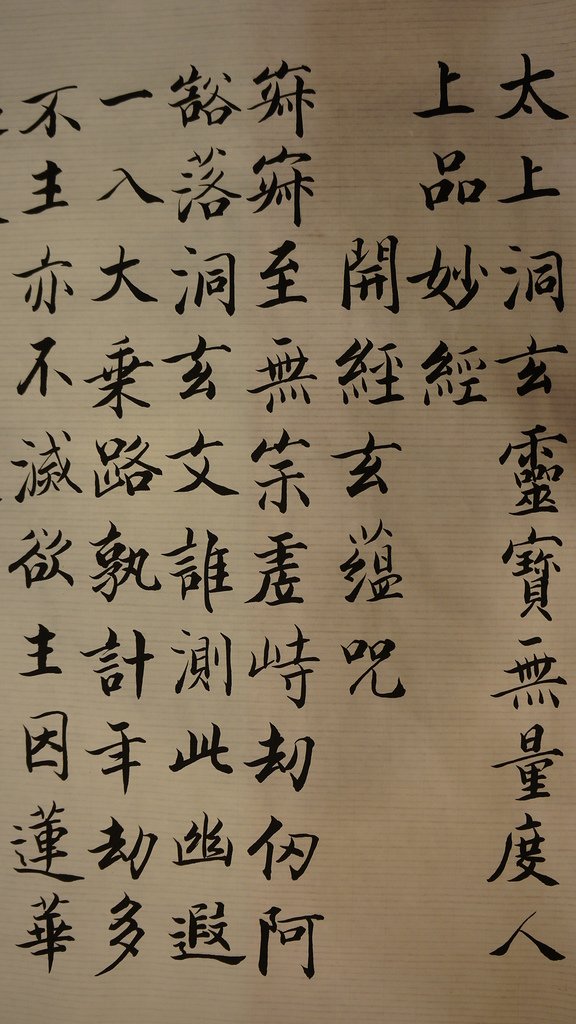 太上洞玄靈寶無量度人
上品妙經
開經玄蘊咒
寂寂至無宗虛峙劫仞阿
豁落洞玄文誰測此幽遐
一入大乘路孰計年劫多
不生亦不滅欲生因蓮華